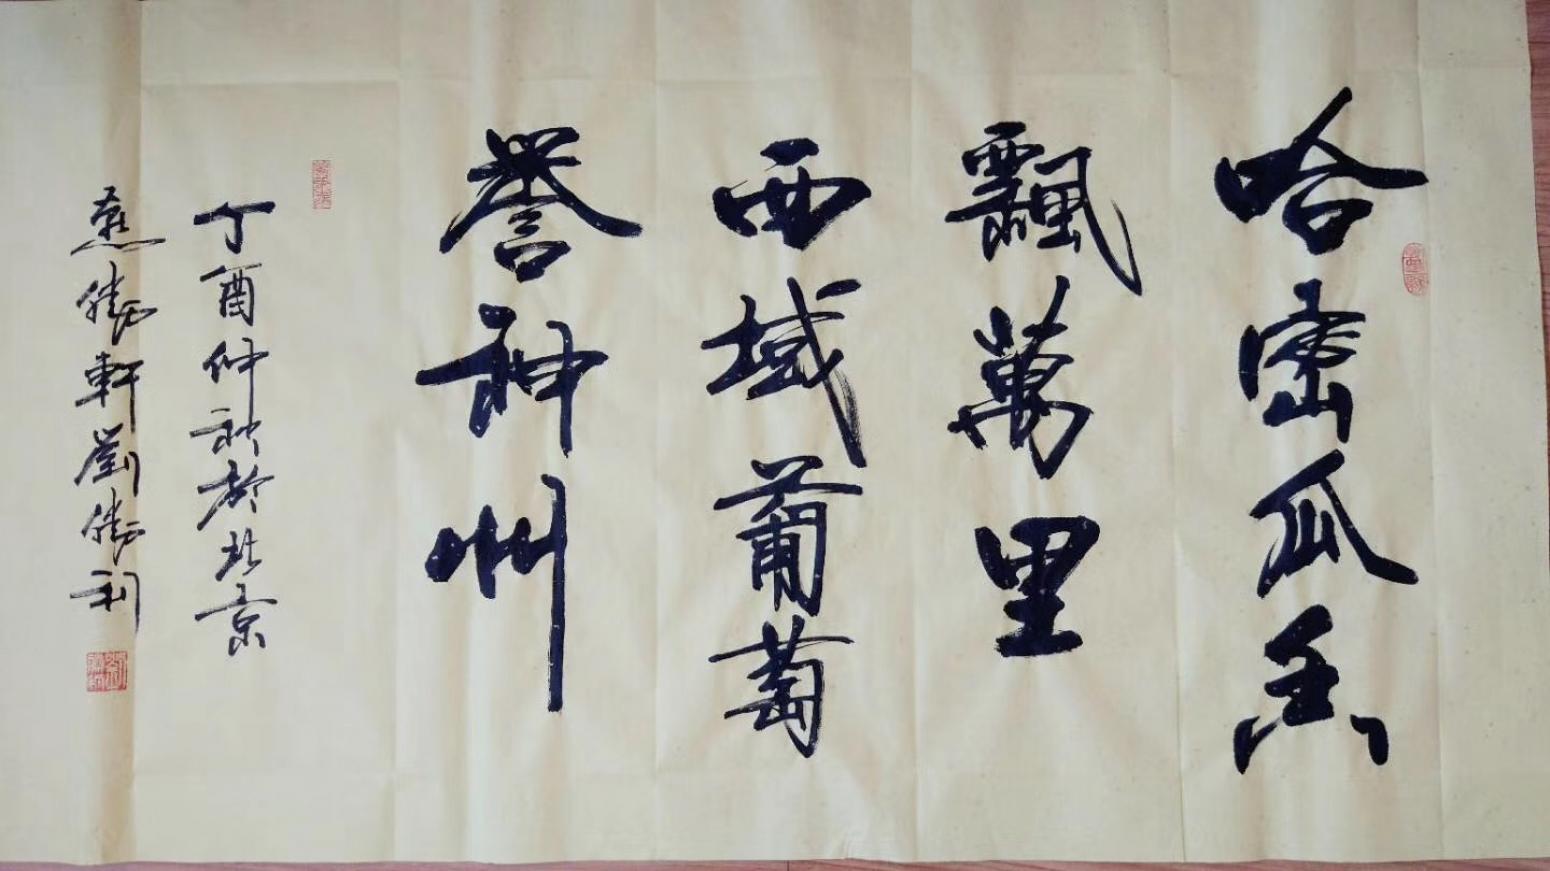 哈密瓜香
飄萬里
西域葡萄
譽神州
丁酉仲秋於北京
勝軒劉勝利